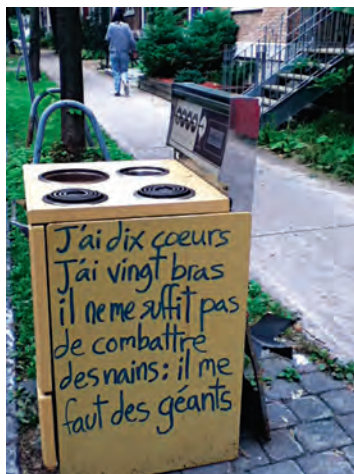 J'ai dix coeurs
J'ai vingt bras
il ne me suffit pas
de combattre
des nains: il me
faut des géants